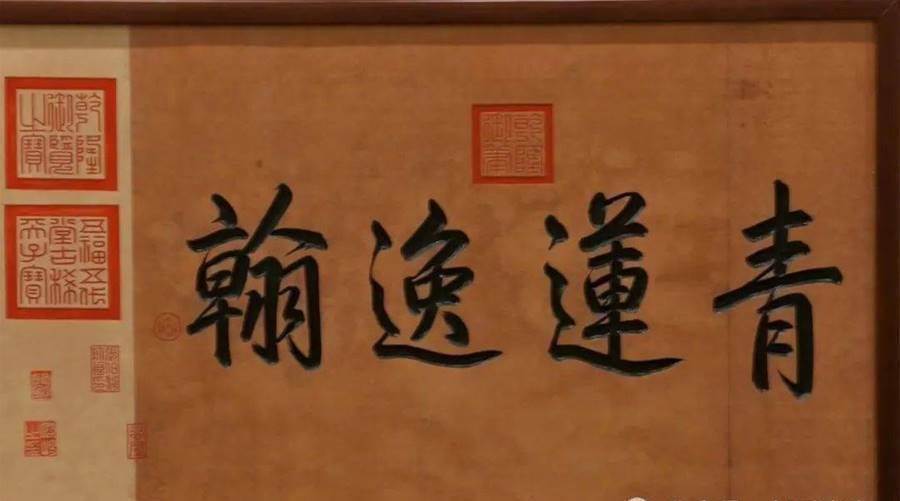 青蓮逸翰
乾隆御筆
乾隆御覽之寶
五福五代堂古稀天子寶